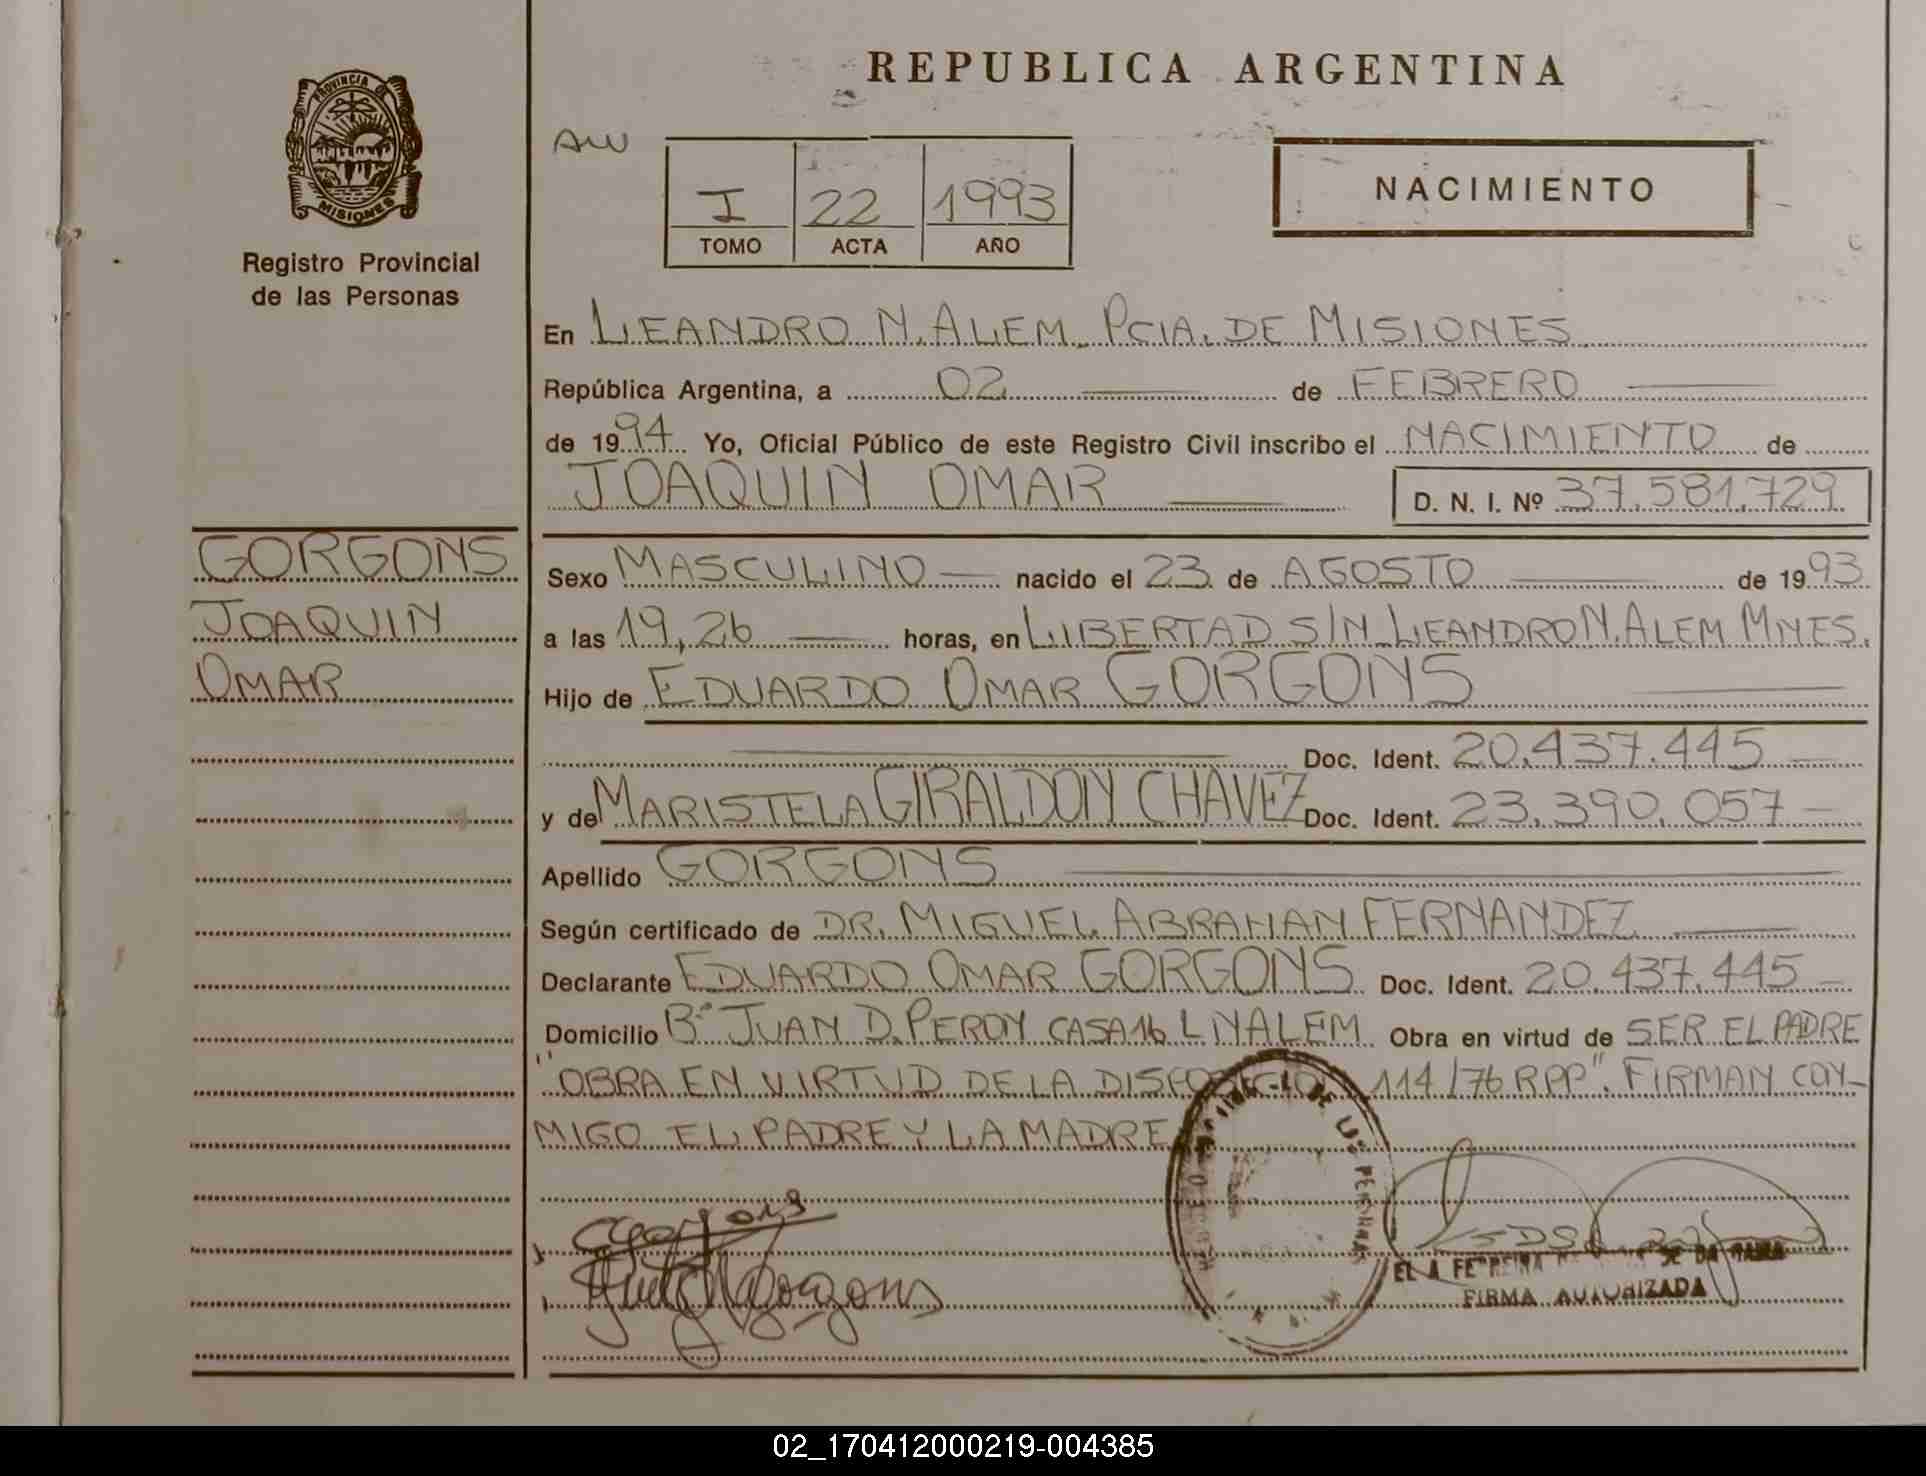 REPUBLICA ARGENTINA
PROVINCIA DE MISIONES
Registro Provincial
de las Personas
I 22 1993
TOMO ACTA AÑO
NACIMIENTO
En LEANDRO N. ALEM. PCIA. DE MISIONES
República Argentina, a 02 de FEBRERO
de 1994 Yo, Oficial Público de este Registro Civil inscribo el NACIMIENTO de
JOAQUIN OMAR D. N. I. Nº 37.581.729
GORGONS
JOAQUIN
OMAR
Sexo MASCULINO nacido el 23 de AGOSTO de 1993
a las 19,26 horas, en LIBERTAD S/N LEANDRO N. ALEM MNES.
Hijo de EDUARDO OMAR GORGONS
Doc. Ident. 20.437.445
y de MARISTELA GIRALDON CHAVEZ Doc. Ident. 23.390.057
Apellido GORGONS
Según certificado de DR. MIGUEL ABRAHAN FERNANDEZ
Declarante EDUARDO OMAR GORGONS Doc. Ident. 20.437.445
Domicilio Bº JUAN D. PERON CASA 16 L N ALEM Obra en virtud de SER EL PADRE
"OBRA EN VIRTUD DE LA 114/76 RPP". FIRMAN CON-
MIGO EL PADRE Y LA MADRE
DE LAS PERSONAS
FERREIRA DE
FIRMA AUTORIZADA
02_170412000219-004385